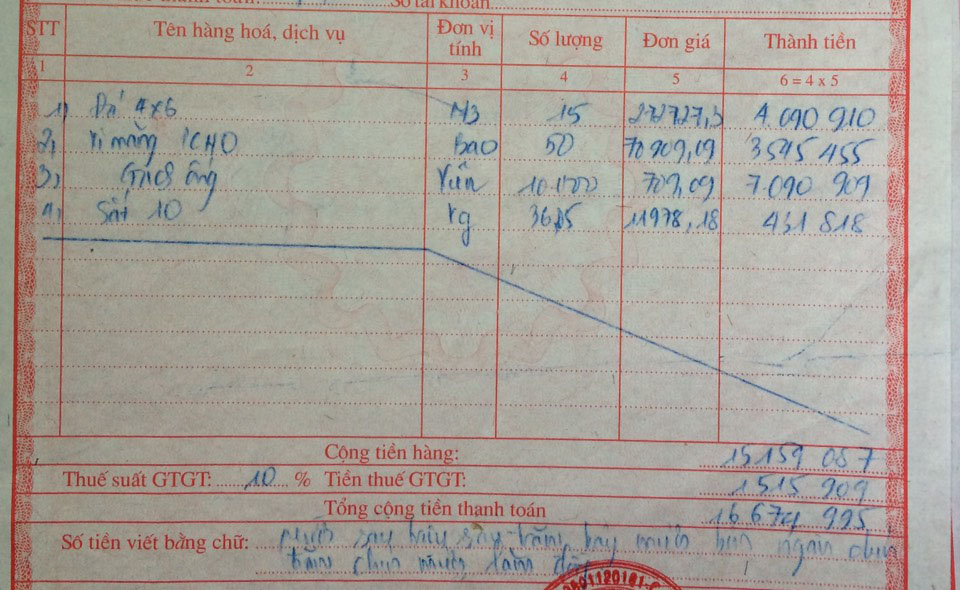 Số tài khoản
STT Tên hàng hoá, dịch vụ Đơn vị tính Số lượng Đơn giá Thành tiền
1 2 3 4 5 6 = 4 x 5
1) Đá 4x6 M3 15 272727,3 4 090 910
2, Xi măng ICHO Bao 50 70909,09 3545 455
3) Gạch ống Viên 10.000 709,09 7.090 909
4, Sắt 10 kg 36,05 11978,18 431 818
Cộng tiền hàng: 15159 087
Thuế suất GTGT: 10 % Tiền thuế GTGT: 1515 909
Tổng cộng tiền thanh toán 16 674 995
Số tiền viết bằng chữ: Mười sáu triệu sáu trăm bảy mươi bốn ngàn chín
trăm chín mươi lăm đồng